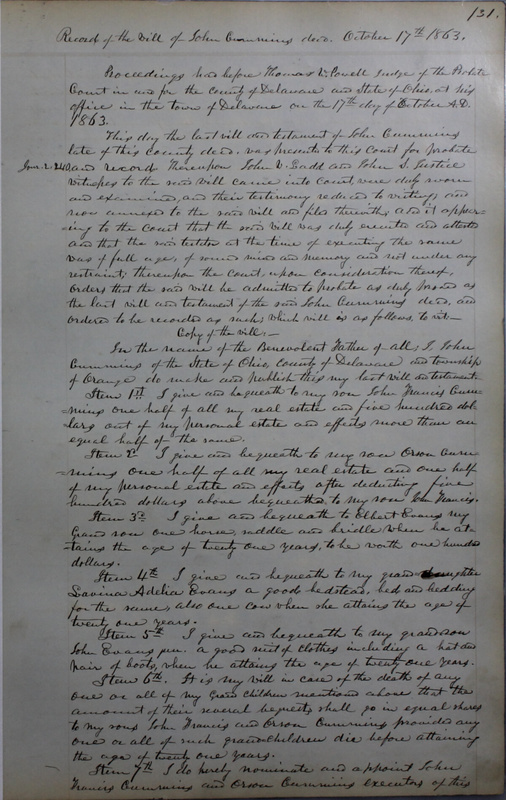 131.
Record of the Will of John Cummins decd. October 17th 1863.
Proceedings had before Thomas W. Powell Judge of the Probate
Court in and for the county of Delaware and State of Ohio, at his
office in the town of Delaware on the 17th day of October A.D.
1863.
This day the last will and testament of John Cummins
late of this county decd. was presented to this Court for probate
and record Thereupon John W. Gadd and John S. Justice
witnesses to the said Will came into Court, were duly sworn
and examined, and their testimony reduced to writing and
now annexed to the said will and filed therewith, and it appear=
=ing to the Court that the said Will was duly executed and attested
and that the said testator at the time of executing the same
was of full age, of sound mind and memory and not under any
restraint; thereupon the court, upon consideration thereof,
orders that the said will be admitted to probate as duly proved as
the last will and testament of the said John Cummins decd, and
ordered to be recorded as such; which will is as follows, to wit—
Copy of the will;—
In the name of the Benevolent Father of all; I, John
Cummins of the State of Ohio, County of Delaware and township
of Orange do make and publish this my last will and testament.
Item 1st I give and bequeath to my son John Francis Cum=
=mins one half of all my real estate and five hundred dol=
=lars out of my personal estate and effects more than an
equal half of the same.
Item 2d I give and bequeath to my son Orson Cum=
=mins one half of all my real estate and one half
of my personal estate and effects after deducting five
hundred dollars above bequeathed to my son Francis.
Item 3d I give and bequeath to Elbert Evans my
Grand son one horse, saddle and bridle when he at=
=tains the age of twenty one years, to be worth one hundred
dollars.
Item 4th I give and bequeath to my grand daughter
Lavina Adelia Evans a good bedstead, bed and bedding
for the same, also one cow when she attains the age of
twenty one years.
Item 5th I give and bequeath to my grandson
John Evans a good suit of clothes including a hat and
pair of boots, when he attains the age of twenty one years.
Item 6th. It is my will in case of the death of any
one or all of my Grand children mentioned above that the
amount of their several bequests shall go in equal shares
to my sons John Francis and Orson Cummins provided any
one or all of such grandchildren die before attaining
the age of twenty one years.
Item 7th I do hereby nominate and appoint John
Francis Cummins and Orson Cummins executors of this